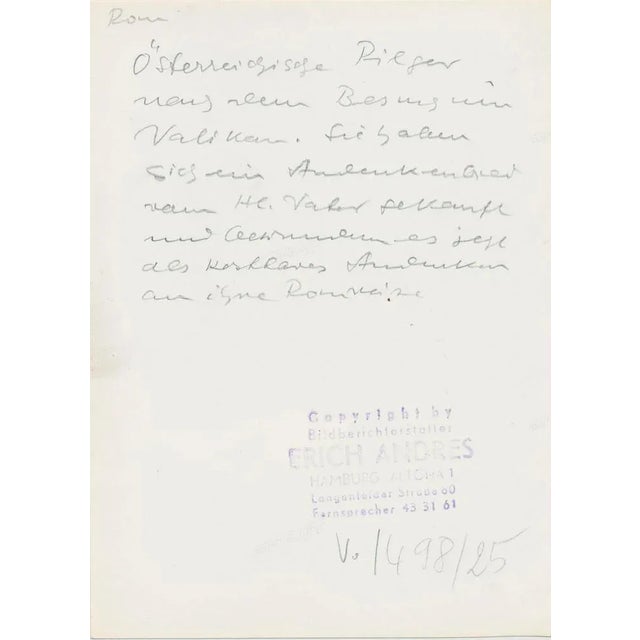 Rom
Österreichische Pilger
nach dem Besuch im
Vatikan. Sie haben
sich ein Andenken
vom Hl. Vater gekauft
und es jetzt
als kostbares Andenken
an ihre Romreise
Copyright by
Bildberichterstatter
ERICH ANDRES
HAMBURG ALTONA 1
Langenfelder Straße 60
Fernsprecher 43 31 61
V. 1498/25